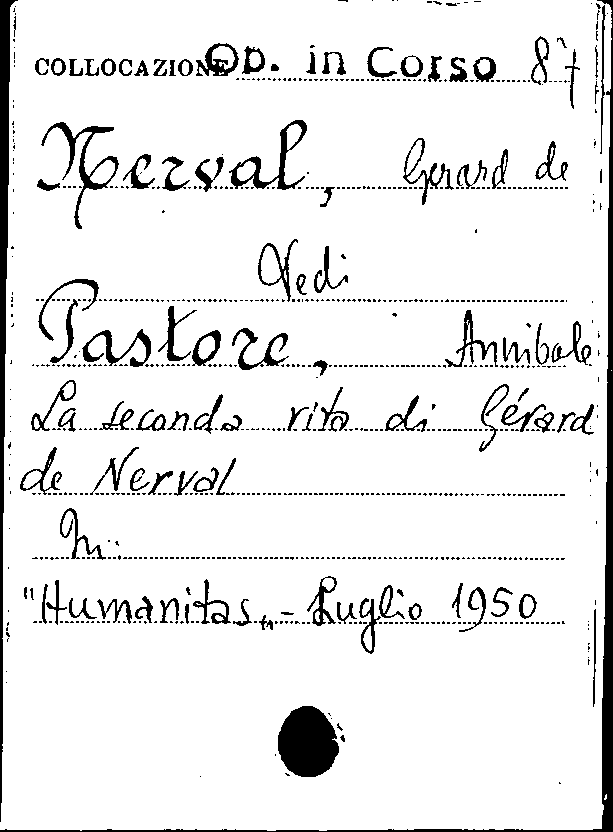 COLLOCAZIONE Op. in Corso 87
Nerval, Gerard de
Vedi
Pastore, Annibale
La seconda vita di Gérard
de Nerval
In:
"Humanitas„ - Luglio 1950